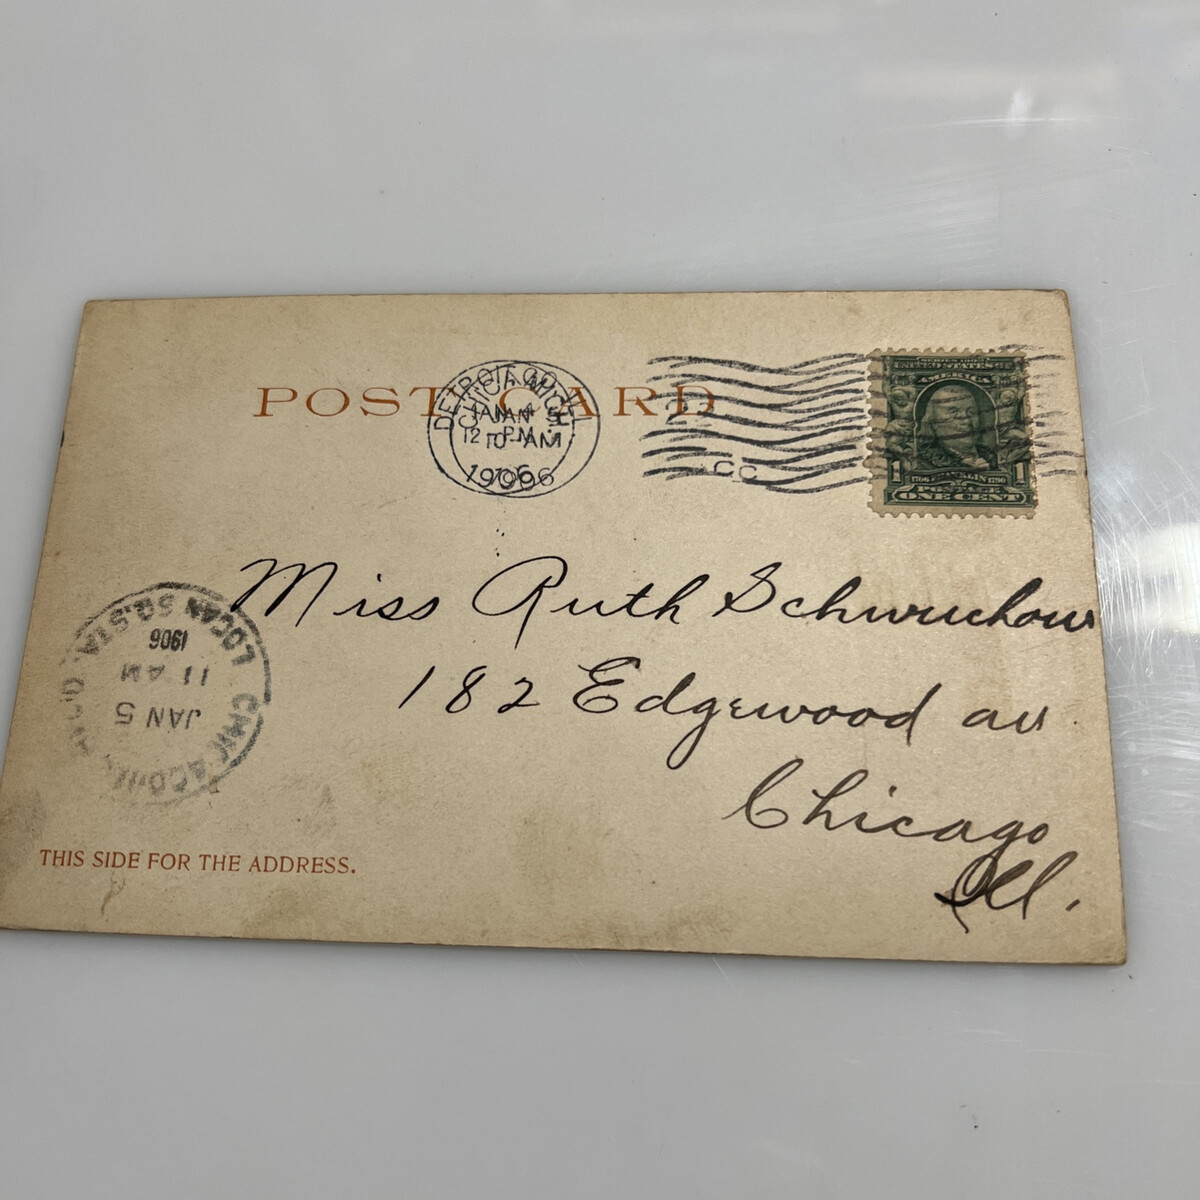 POST CARD
DETROIT, MICH.
JAN 4
12 PM
1906
CHICAGO, ILL.
JAN 5
10 AM
1906
2
CC
SERIES 1902
UNITED STATES OF
AMERICA
1 1
1706 FRANKLIN 1790
POSTAGE
ONE CENT
Miss Ruth
182 Edgewood av
Chicago
Ill.
LOGAN SQ. STA.
1906
11 AM
JAN 5
THIS SIDE FOR THE ADDRESS.